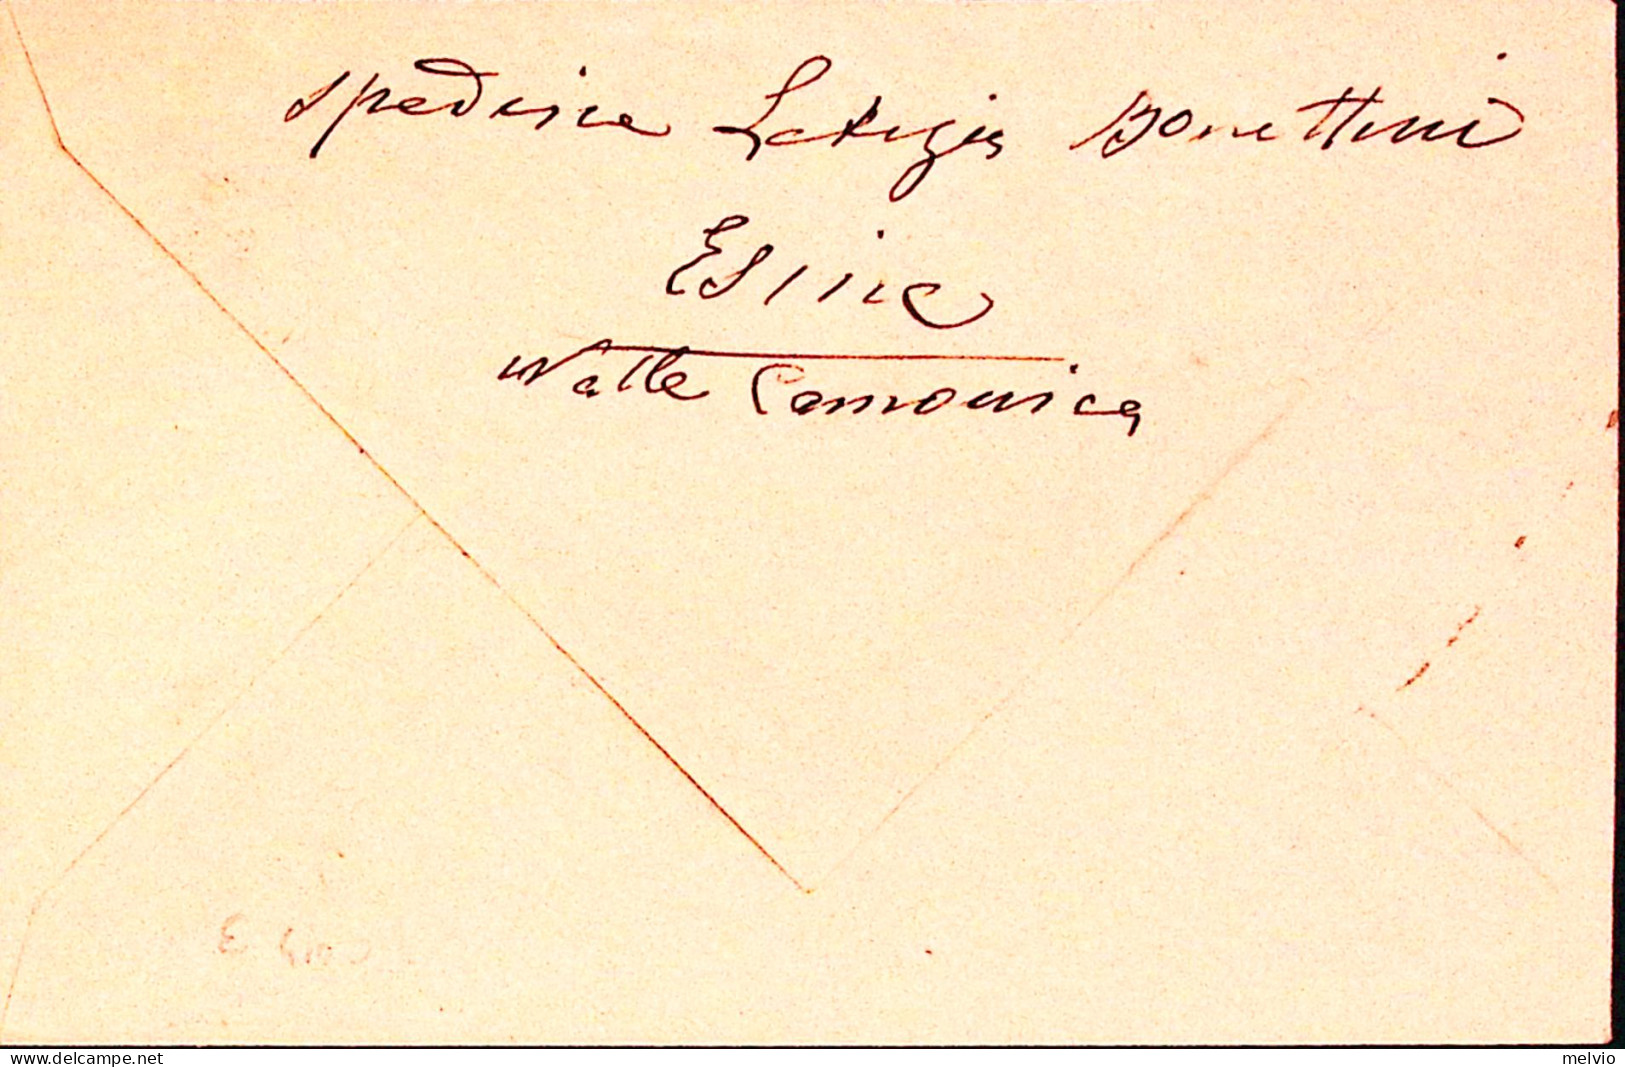 Spedisce Letizia Bonettini
Esine
Valle Camonica
www.delcampe.net
melvio